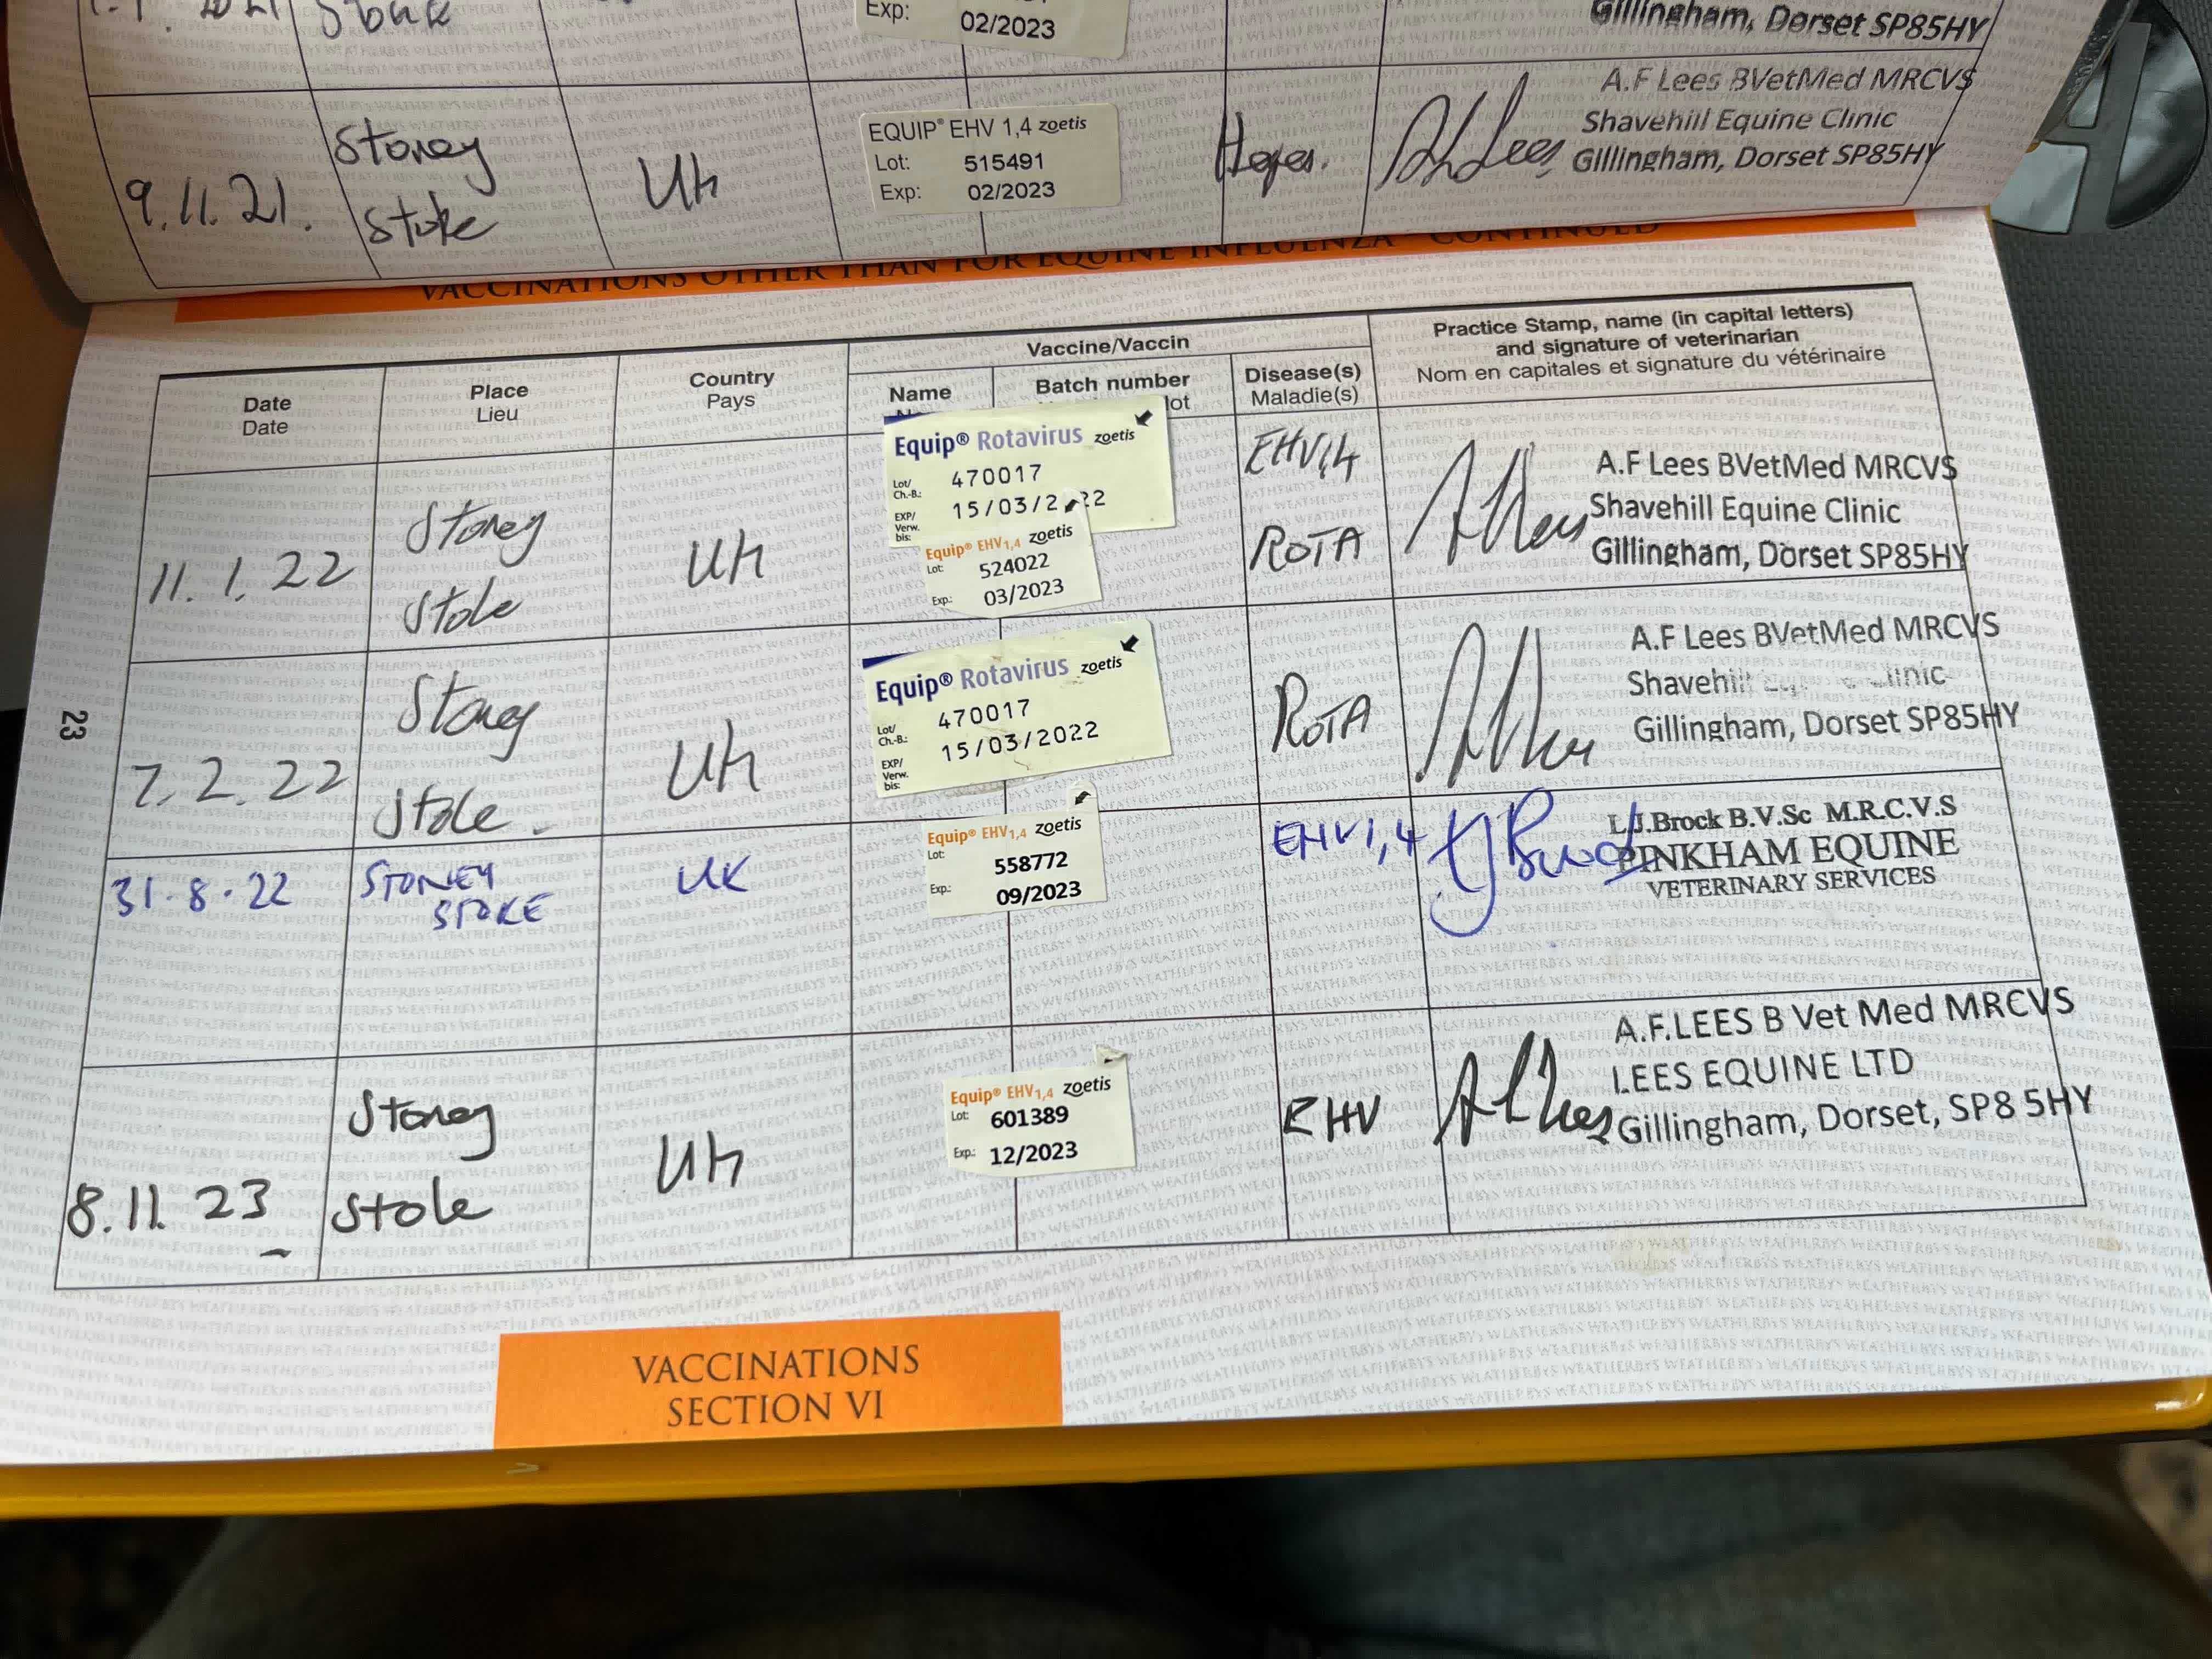 Exp:
02/2023
Gillingham, Dorset SP85HY
9.11.21.
Stoney
Stoke
Uk
EQUIP® EHV 1,4 zoetis
Lot: 515491
Exp: 02/2023
A.F Lees BVetMed MRCVS
Shavehill Equine Clinic
Gillingham, Dorset SP85HY
VACCINATIONS OTHER THAN FOR EQUINE INFLUENZA - CONTINUED
Date
Date
Place
Lieu
Country
Pays
Vaccine/Vaccin
Name
Batch number
lot
Disease(s)
Maladie(s)
Practice Stamp, name (in capital letters)
and signature of veterinarian
Nom en capitales et signature du vétérinaire
11.1.22
Stoney
Stoke
Uk
Equip® Rotavirus zoetis
Lot/
Ch.-B.:
470017
EXP/
Verw.
bis:
15/03/2 22
Equip® EHV1,4 zoetis
Lot: 524022
Exp.: 03/2023
EHV1,4
ROTA
A.F Lees BVetMed MRCVS
Shavehill Equine Clinic
Gillingham, Dorset SP85HY
7.2.22
Stoney
Stoke
Uk
Equip® Rotavirus zoetis
Lot/
Ch.-B.:
470017
EXP/
Verw.
bis:
15/03/2022
ROTA
A.F Lees BVetMed MRCVS
Gillingham, Dorset SP85HY
31.8.22
STONEY
STOKE
UK
Equip® EHV1,4 zoetis
Lot: 558772
Exp.: 09/2023
EHV1,4
L.J.Brock B.V.Sc M.R.C.V.S
PINKHAM EQUINE
VETERINARY SERVICES
8.11.23
Stoney
Stoke
Uk
Equip® EHV1,4 zoetis
Lot: 601389
Exp.: 12/2023
EHV
A.F.LEES B Vet Med MRCVS
LEES EQUINE LTD
Gillingham, Dorset, SP8 5HY
23
VACCINATIONS
SECTION VI